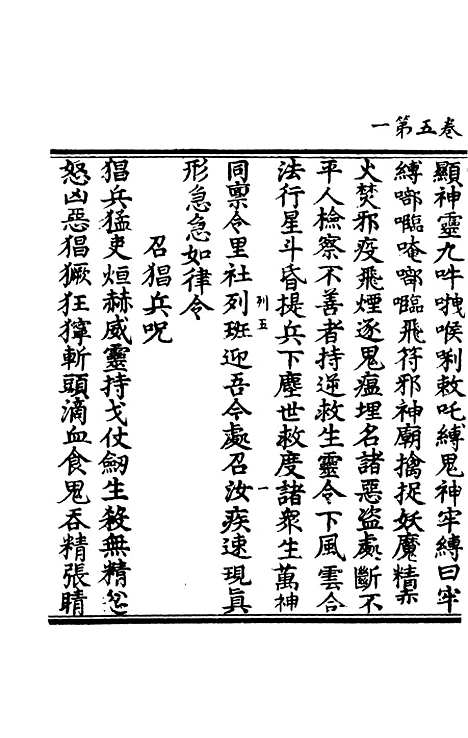 卷五第一
顯神靈九吽㗨喉唎敕吒縛鬼神牢縛曰牢
縛㘄𡄸唵㘄𡄸飛符邪神廟擒捉妖魔精柰
火焚邪疫飛煙逐鬼瘟埋名諸惡盜處斷不
平人檢察不善者持逆救生靈令下風雲合
法行星斗昏提兵下塵世救度諸衆生萬神
列五 一
同禀令里社列班迎吾今處召汝疾速現真
形急急如律令
召猖兵呪
猖兵猛吏烜赫威靈持戈仗劒生殺無精忿
怒凶惡猖獗狂獰斬頭滴血食鬼吞精張睛